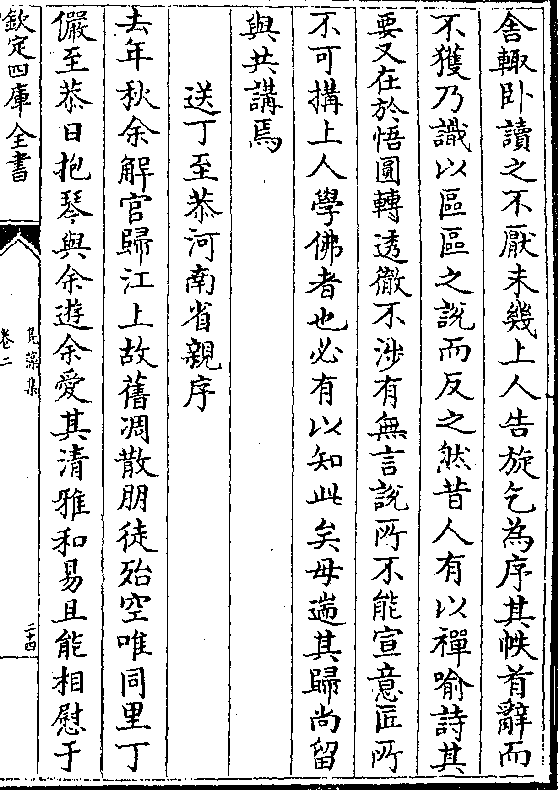 舎輙卧讀之不厭未幾上人告旋乞為序其帙首辭而
不獲乃識以區區之說而反之然昔人有以禪喻詩其
要又在於悟圓轉透徹不涉有無言說所不能宣意匠所
不可搆上人學佛者也必有以知此矣毋遄其歸尚留
與共講焉
送丁至恭河南省親序
去年秋余解官歸江上故舊凋散朋徒殆空唯同里丁
儼至恭日抱琴與余遊余愛其清雅和易且能相慰于
欽定四庫全書
鳬藻集
卷二
二十四